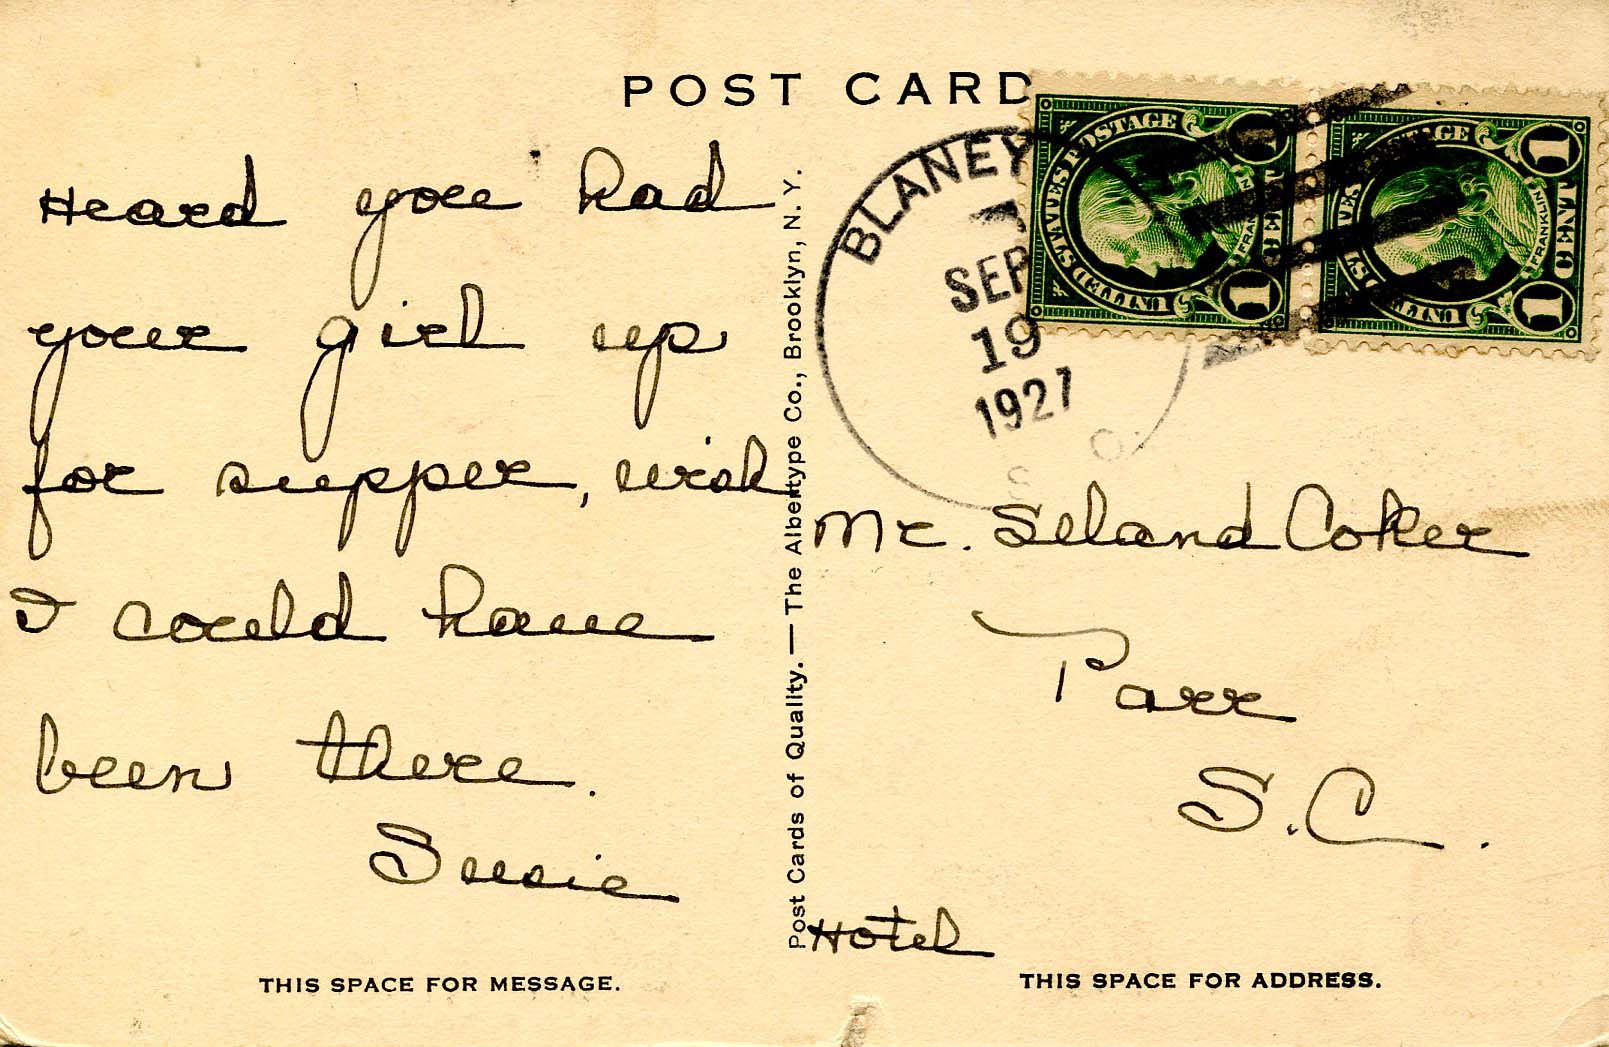 POST CARD
Heard you had
your girl up
for supper, wish
I could have
been there.
Susie
THIS SPACE FOR MESSAGE.
Post Cards of Quality. — The Albertype Co., Brooklyn, N. Y.
BLANEY
SEP
19
1927
S. C.
UNITED STATES POSTAGE
FRANKLIN
1 CENT 1
FRANKLIN
1 CENT 1
Mr. Leland Coker
Parr
S.C.
Hotel
THIS SPACE FOR ADDRESS.